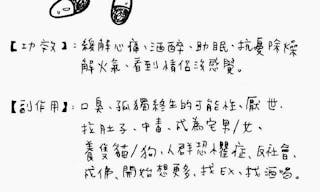 【功效】：緩解心痛、酒醉、助眠、抗憂除燥
解火氣、看到情侶沒感覺。
【副作用】：口臭、孤獨終生的可能性、厭世、
拉肚子、中毒、成為宅男/女、
養隻貓/狗、人群恐懼症、反社會、
成佛、開始想更多、找EX、找酒喝。